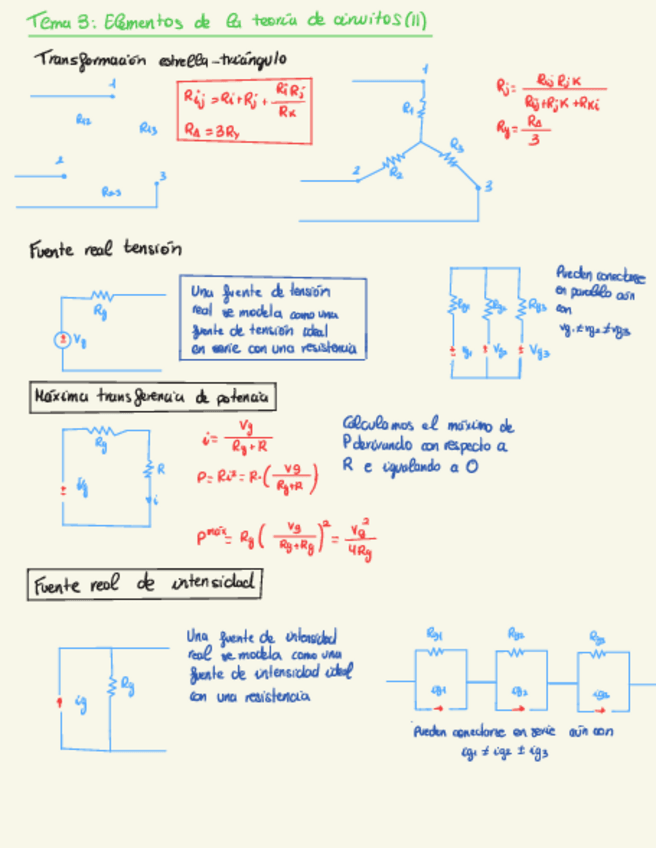 Tema 3: Elementos de la teoría de circuitos (II)
Transformación estrella-triángulo
1
R12
R13
2
R23
3
Rij = Ri + Rj + RiRj/Rk
RΔ = 3Ry
1
R1
R2
R3
2
3
Rj = Rij Rjk / Rij + Rjk + Rki
Ry = RΔ/3
Fuente real tensión
Rg
Vg
Una fuente de tensión
real se modela como una
fuente de tensión ideal
en serie con una resistencia
Rg1 Rg2 Rg3
Vg2 Vg3
Pueden conectarse
en paralelo aún
con
vg1 ≠ vg2 ≠ vg3
Máxima transferencia de potencia
Rg
ig
R
i
i = Vg / Rg + R
P = Ri² = R·(Vg / Rg+R)
Pmáx = Rg (Vg / Rg+Rg)² = Vg² / 4Rg
Calculamos el máximo de
P derivando con respecto a
R e igualando a 0
Fuente real de intensidad
ig
Rg
Una fuente de intensidad
real se modela como una
fuente de intensidad ideal
con una resistencia
Rg1 Rg2 Rg3
ig1 ig2
Pueden conectarse en serie aún con
ig1 ≠ ig2 ± ig3